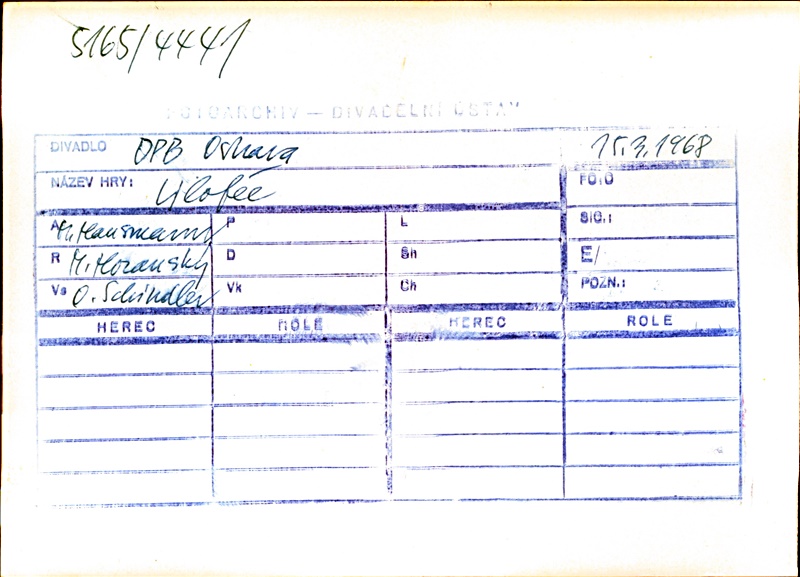 5165/4441
FOTOARCHIV — DIVADELNÍ ÚSTAV
DIVADLO DPB Ostrava 15.3.1968
NÁZEV HRY: FOTO
A M. Hausmann P L SIG.:
R M. Moravský D Sh E/
Vs O. Schindler Vk Ch POZN.:
HEREC ROLE HEREC ROLE